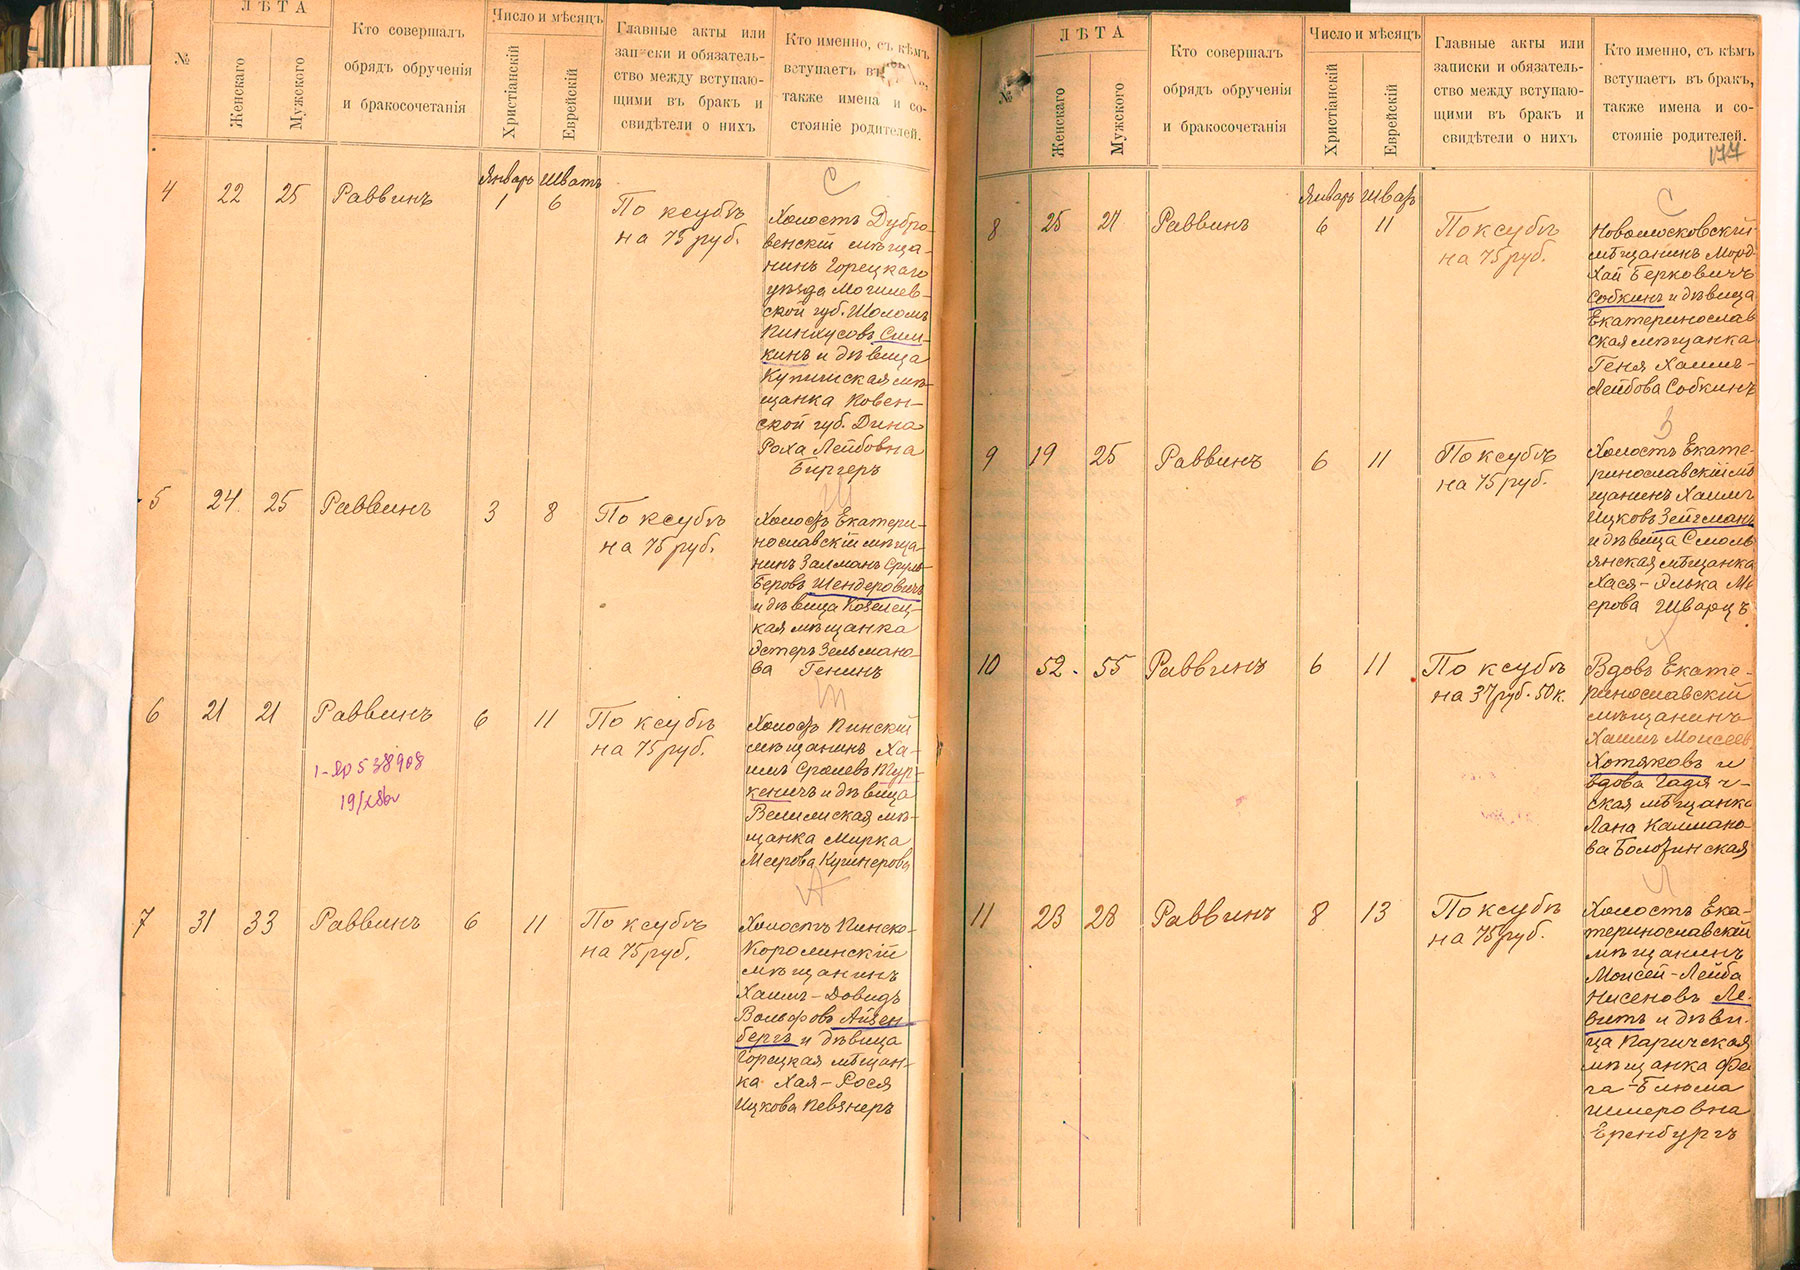 №
ЛѢТА
Женскаго
Мужского
Кто совершалъ
обрядъ обрученія
и бракосочетанія
Число и мѣсяцъ
Христіанскій
Еврейскій
Главные акты или
записки и обязатель-
ство между вступаю-
щими въ бракъ и
свидѣтели о нихъ
Кто именно, съ кѣмъ
вступаетъ въ
также имена и со-
стояніе родителей.
Январь Шватъ
4 22 25 Раввинъ 1 6
По ксубѣ
на 75 руб.
С
Холостъ Дубро-
венскій мѣща-
нинъ Горецкаго
уѣзда Могилев-
ской губ. Шоломъ
Пинхусовъ Сим-
кинъ и дѣвица
Купишская мѣ-
щанка Ковен-
ской губ. Дина
Роха Лейбовна
Биргеръ
5 24 25 Раввинъ 3 8
По ксубѣ
на 75 руб.
Ш
Холостъ Екатери-
нославскій мѣща-
нинъ Залманъ Сруль-
Беровъ Шендеровичъ
и дѣвица Козелец-
кая мѣщанка
Эстеръ Зельмано-
ва Генинъ
6 21 21 Раввинъ 6 11
По ксубѣ
на 75 руб.
Т
Холостъ Пинскій
мѣщанинъ Ха-
имъ Сролевъ Тур-
кеничъ и дѣвица
Велижская мѣ-
щанка Мирка
Меерова Кушнеровъ
7 31 33 Раввинъ 6 11
По ксубѣ
на 75 руб.
А
Холостъ Пинско-
Каролинскій
мѣщанинъ
Хаимъ-Довидъ
Вольфовъ Айзен-
бергъ и дѣвица
Горецкая мѣщан-
ка Хая-Рося
Ицкова Певзнеръ
№
ЛѢТА
Женскаго
Мужского
Кто совершалъ
обрядъ обрученія
и бракосочетанія
Число и мѣсяцъ
Христіанскій
Еврейскій
Главные акты или
записки и обязатель-
ство между вступаю-
щими въ бракъ и
свидѣтели о нихъ
Кто именно, съ кѣмъ
вступаетъ въ бракъ,
также имена и со-
стояніе родителей.
177
Январь Шватъ
8 25 27 Раввинъ 6 11
По ксубѣ
на 75 руб.
С
Новомосковскій
мѣщанинъ Морд-
хай Берковичъ
Собкинъ и дѣвица
Екатеринослав
ская мѣщанка
Геня Хаимъ-
Лейбова Собкинъ
9 19 25 Раввинъ 6 11
По ксубѣ
на 75 руб.
З
Холостъ Екате-
ринославскій мѣ
щанинъ Хаимъ
Ицковъ Зейгманъ
и дѣвица Смоль
янская мѣщанка
Хася-Элька Ме
ерова Шварцъ
10 52 55 Раввинъ 6 11
По ксубѣ
на 37 руб. 50 к.
Х
Вдовъ Екате-
ринославскій
мѣщанинъ
Хаимъ Моисеев
Хотяковъ и
вдова Гадяч-
ская мѣщанка
Хана Калмано-
ва Болотинская
11 23 28 Раввинъ 8 13
По ксубѣ
на 75 руб.
Л
Холостъ Ека-
теринославскій
мѣщанинъ
Моисей-Лейба
Нисеновъ Ле-
витъ и дѣви-
ца Паричская
мѣщанка Фей
га-Блюма
Шмеровна
Еренбургъ